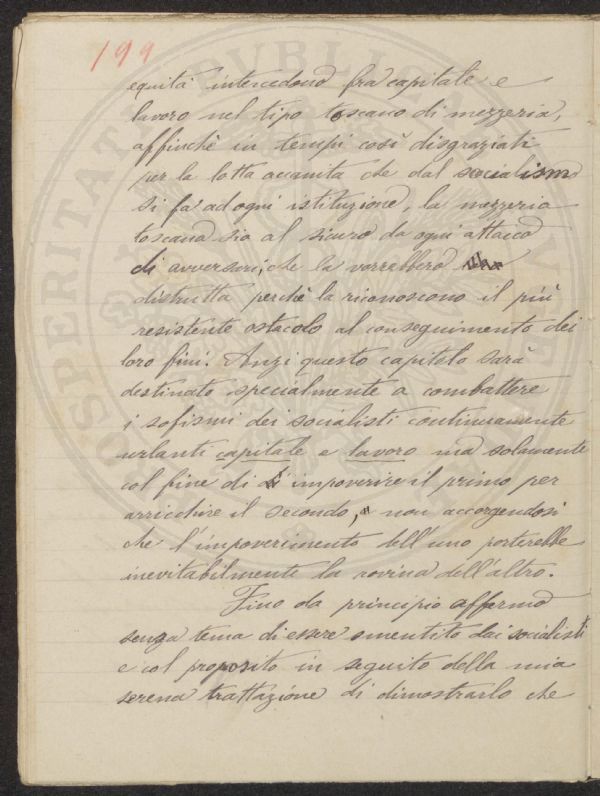 199
equità intercedono fra capitale e
lavoro nel tipo toscano di mezzeria,
affinchè in tempi così disgraziati
per la lotta accanita che dal socialismo
si fà ad ogni istituzione, la mezzeria
toscana sia al sicuro da ogni attacco
di avversari, che la vorrebbero
distrutta perchè la riconoscono il più
resistente ostacolo al conseguimento dei
loro fini. Anzi questo capitolo sarà
destinato specialmente a combattere
i sofismi dei socialisti continuamente
urlanti capitale e lavoro ma solamente
col fine di impoverire il primo per
arricchire il secondo, non accorgendosi
che l'impoverimento dell'uno porterebbe
inevitabilmente la rovina dell'altro.
Fino da principio affermo
senza tema di essere smentito dai socialisti
e col proposito in seguito della mia
serena trattazione di dimostrarlo che
PROSPERITATI PUBLICAE